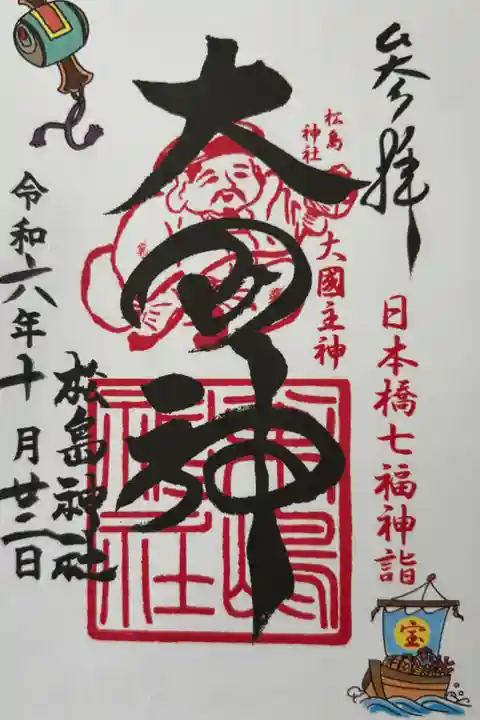 参拝
日本橋七福神詣
松島
神社
大國主神
大国神
松島神社
令和六年十月廿二日
宝